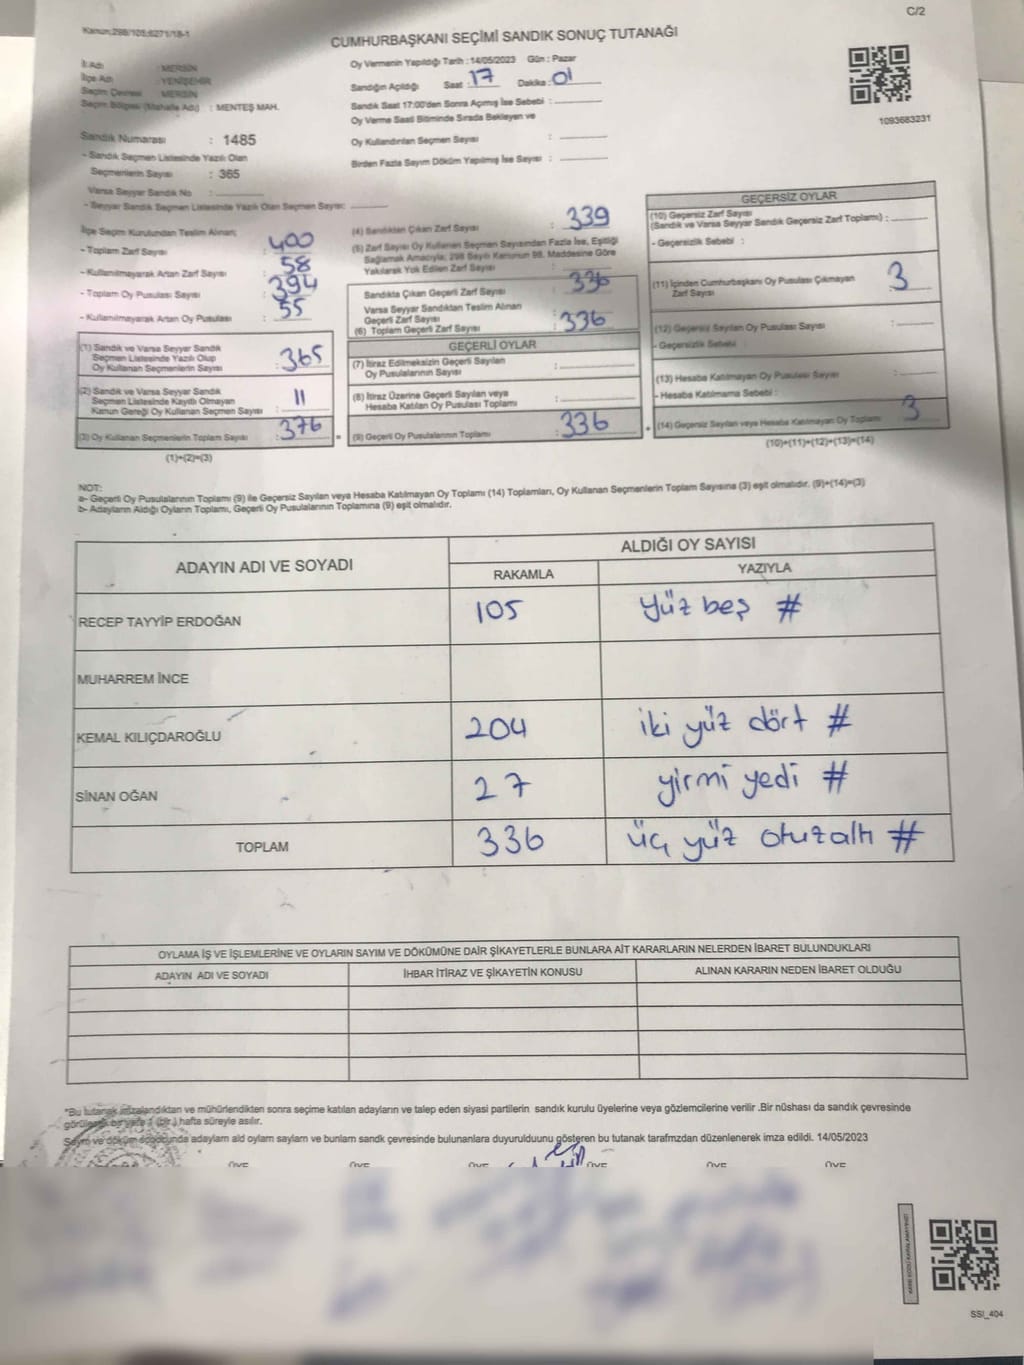 C/2
Kanun:298/105;6271/18-1
CUMHURBAŞKANI SEÇİMİ SANDIK SONUÇ TUTANAĞI
İl Adı : MERSİN
İlçe Adı : YENİŞEHİR
Seçim Çevresi : MERSİN
Seçim Bölgesi (Mahalle Adı) : MENTEŞ MAH.
Sandık Numarası : 1485
- Sandık Seçmen Listesinde Yazılı Olan
Seçmenlerin Sayısı : 365
Varsa Seyyar Sandık No :
- Seyyar Sandık Seçmen Listesinde Yazılı Olan Seçmen Sayısı:
Oy Vermenin Yapıldığı Tarih : 14/05/2023 Gün : Pazar
Sandığın Açıldığı Saat : 17 Dakika : 01
Sandık Saat 17:00'den Sonra Açılmış İse Sebebi :
Oy Verme Saati Bitiminde Sırada Bekleyen ve
Oy Kullandırılan Seçmen Sayısı :
Birden Fazla Sayım Döküm Yapılmış İse Sayısı :
1093683231
İlçe Seçim Kurulundan Teslim Alınan;
- Toplam Zarf Sayısı : 400
- Kullanılmayarak Artan Zarf Sayısı : 58
- Toplam Oy Pusulası Sayısı : 394
- Kullanılmayarak Artan Oy Pusulası : 55
(1) Sandık ve Varsa Seyyar Sandık
Seçmen Listesinde Yazılı Olup
Oy Kullanan Seçmenlerin Sayısı : 365
(2) Sandık ve Varsa Seyyar Sandık
Seçmen Listesinde Kayıtlı Olmayan
Kanun Gereği Oy Kullanan Seçmen Sayısı : 11
(3) Oy Kullanan Seçmenlerin Toplam Sayısı : 376
(1)+(2)=(3)
(4) Sandıktan Çıkan Zarf Sayısı : 339
(5) Zarf Sayısı Oy Kullanan Seçmen Sayısından Fazla İse, Eşitliği
Sağlamak Amacıyla; 298 Sayılı Kanunun 98. Maddesine Göre
Yakılarak Yok Edilen Zarf Sayısı :
Sandıkta Çıkan Geçerli Zarf Sayısı : 336
Varsa Seyyar Sandıktan Teslim Alınan
Geçerli Zarf Sayısı :
(6) Toplam Geçerli Zarf Sayısı : 336
GEÇERLİ OYLAR
(7) İtiraz Edilmeksizin Geçerli Sayılan
Oy Pusulalarının Sayısı :
(8) İtiraz Üzerine Geçerli Sayılan veya
Hesaba Katılan Oy Pusulası Toplamı :
= (9) Geçerli Oy Pusulalarının Toplamı : 336
GEÇERSİZ OYLAR
(10) Geçersiz Zarf Sayısı
(Sandık ve Varsa Seyyar Sandık Geçersiz Zarf Toplamı) :
- Geçersizlik Sebebi :
(11) İçinden Cumhurbaşkanı Oy Pusulası Çıkmayan
Zarf Sayısı : 3
(12) Geçersiz Sayılan Oy Pusulası Sayısı :
- Geçersizlik Sebebi :
(13) Hesaba Katılmayan Oy Pusulası Sayısı :
- Hesaba Katılmama Sebebi :
+ (14) Geçersiz Sayılan veya Hesaba Katılmayan Oy Toplamı : 3
(10)+(11)+(12)+(13)=(14)
NOT:
a- Geçerli Oy Pusulalarının Toplamı (9) ile Geçersiz Sayılan veya Hesaba Katılmayan Oy Toplamı (14) Toplamları, Oy Kullanan Seçmenlerin Toplam Sayısına (3) eşit olmalıdır. (9)+(14)=(3)
b- Adayların Aldığı Oyların Toplamı, Geçerli Oy Pusulalarının Toplamına (9) eşit olmalıdır.
ADAYIN ADI VE SOYADI ALDIĞI OY SAYISI
RAKAMLA YAZIYLA
RECEP TAYYİP ERDOĞAN 105 Yüz beş #
MUHARREM İNCE
KEMAL KILIÇDAROĞLU 204 iki yüz dört #
SİNAN OĞAN 27 yirmi yedi #
TOPLAM 336 üç yüz otuzaltı #
OYLAMA İŞ VE İŞLEMLERİNE VE OYLARIN SAYIM VE DÖKÜMÜNE DAİR ŞİKAYETLERLE BUNLARA AİT KARARLARIN NELERDEN İBARET BULUNDUKLARI
ADAYIN ADI VE SOYADI İHBAR İTİRAZ VE ŞİKAYETİN KONUSU ALINAN KARARIN NEDEN İBARET OLDUĞU
"Bu tutanak imzalandıktan ve mühürlendikten sonra seçime katılan adayların ve talep eden siyasi partilerin sandık kurulu üyelerine veya gözlemcilerine verilir .Bir nüshası da sandık çevresinde
görülebilir bir yere 1 (bir ) hafta süreyle asılır.
Sayım ve döküm sonucunda adayların ald oyların sayların ve bunların sandık çevresinde bulunanlara duyurulduunu gösteren bu tutanak tarafmzdan düzenlenerek imza edildi. 14/05/2023
ÜYE ÜYE ÜYE ÜYE ÜYE ÜYE
SSI_404